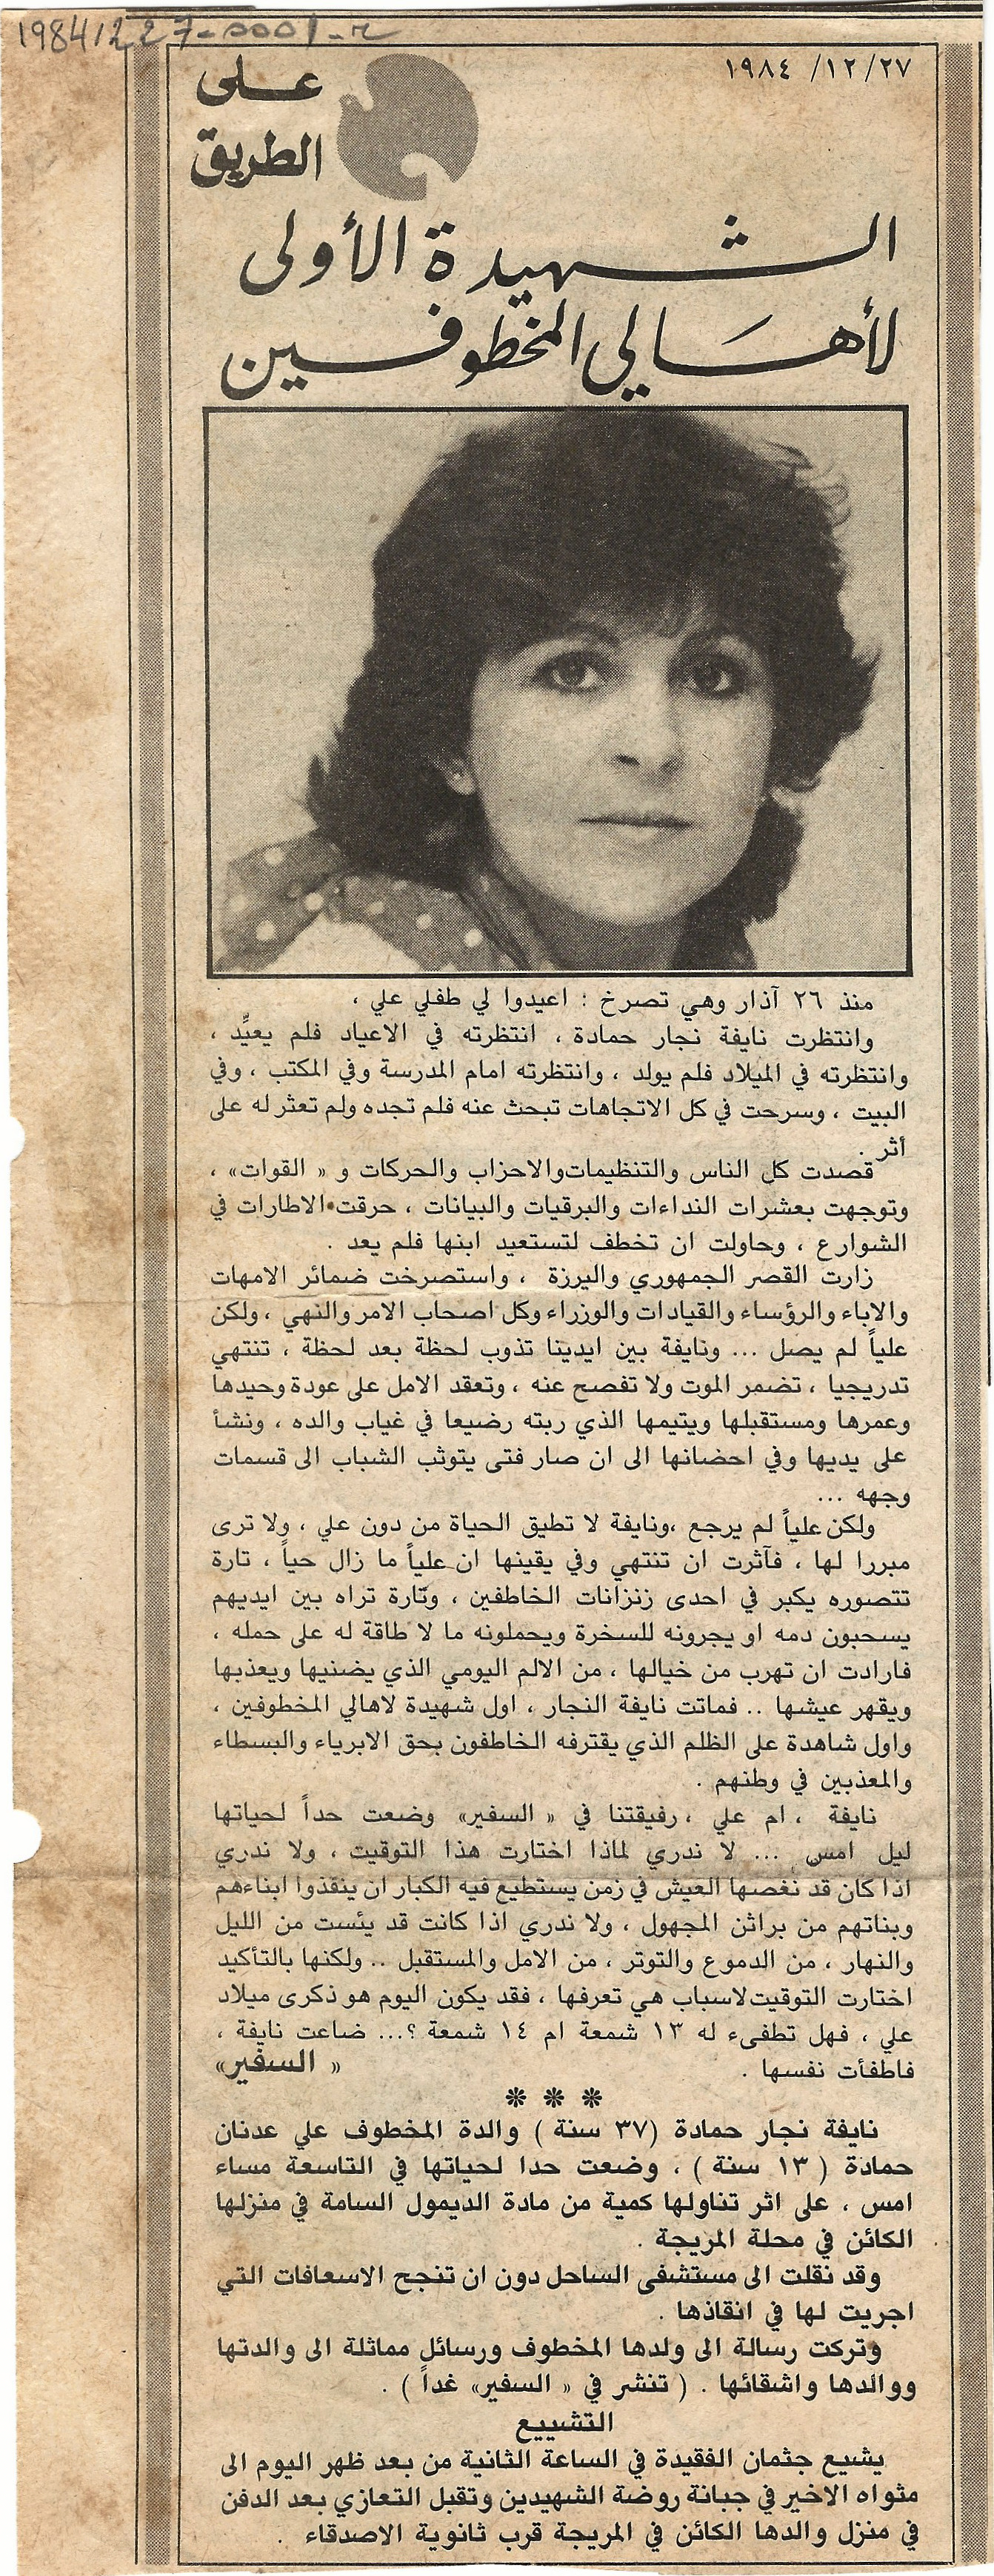 19841227-0001-r
١٩٨٤/١٢/٢٧
على
الطريق
الشهيدة الأولى
لأهالي المخطوفين
منذ ٢٦ آذار وهي تصرخ : اعيدوا لي طفلي علي ،
وانتظرت نايفة نجار حمادة ، انتظرته في الاعياد فلم يعيِّد ،
وانتظرته في الميلاد فلم يولد ، وانتظرته امام المدرسة وفي المكتب ، وفي
البيت ، وسرحت في كل الاتجاهات تبحث عنه فلم تجده ولم تعثر له على
أثر .
قصدت كل الناس والتنظيمات والاحزاب والحركات و « القوات» ،
وتوجهت بعشرات النداءات والبرقيات والبيانات ، حرقت الاطارات في
الشوارع ، وحاولت ان تخطف لتستعيد ابنها فلم يعد .
زارت القصر الجمهوري واليرزة ، واستصرخت ضمائر الامهات
والاباء والرؤساء والقيادات والوزراء وكل اصحاب الامر والنهي ، ولكن
علياً لم يصل ... ونايفة بين ايدينا تذوب لحظة بعد لحظة ، تنتهي
تدريجيا ، تضمر الموت ولا تفصح عنه ، وتعقد الامل على عودة وحيدها
وعمرها ومستقبلها ويتيمها الذي ربته رضيعا في غياب والده ، ونشأ
على يديها وفي احضانها الى ان صار فتى يتوثب الشباب الى قسمات
وجهه ...
ولكن علياً لم يرجع ،ونايفة لا تطيق الحياة من دون علي ، ولا ترى
مبررا لها ، فآثرت ان تنتهي وفي يقينها ان علياً ما زال حياً ، تارة
تتصوره يكبر في احدى زنزانات الخاطفين ، وتارة تراه بين ايديهم
يسحبون دمه او يجرونه للسخرة ويحملونه ما لا طاقة له على حمله ،
فارادت ان تهرب من خيالها ، من الالم اليومي الذي يضنيها ويعذبها
ويقهر عيشها .. فماتت نايفة النجار ، اول شهيدة لاهالي المخطوفين ،
واول شاهدة على الظلم الذي يقترفه الخاطفون بحق الابرياء والبسطاء
والمعذبين في وطنهم .
نايفة ، ام علي ، رفيقتنا في « السفير» وضعت حداً لحياتها
ليل امس ... لا ندري لماذا اختارت هذا التوقيت ، ولا ندري
اذا كان قد نغصها العيش في زمن يستطيع فيه الكبار ان ينقذوا ابناءهم
وبناتهم من براثن المجهول ، ولا ندري اذا كانت قد يئست من الليل
والنهار ، من الدموع والتوتر ، من الامل والمستقبل .. ولكنها بالتأكيد
اختارت التوقيت لاسباب هي تعرفها ، فقد يكون اليوم هو ذكرى ميلاد
علي ، فهل تطفىء له ١٣ شمعة ام ١٤ شمعة ؟... ضاعت نايفة ،
فاطفأت نفسها . « السفير»
* * *
نايفة نجار حمادة (٣٧ سنة ) والدة المخطوف علي عدنان
حمادة ( ١٣ سنة ) ، وضعت حدا لحياتها في التاسعة مساء
امس ، على اثر تناولها كمية من مادة الديمول السامة في منزلها
الكائن في محلة المريجة .
وقد نقلت الى مستشفى الساحل دون ان تنجح الاسعافات التي
اجريت لها في انقاذها .
وتركت رسالة الى ولدها المخطوف ورسائل مماثلة الى والدتها
ووالدها واشقائها . ( تنشر في « السفير» غداً ) .
التشييع
يشيع جثمان الفقيدة في الساعة الثانية من بعد ظهر اليوم الى
مثواه الاخير في جبانة روضة الشهيدين وتقبل التعازي بعد الدفن
في منزل والدها الكائن في المريجة قرب ثانوية الاصدقاء .